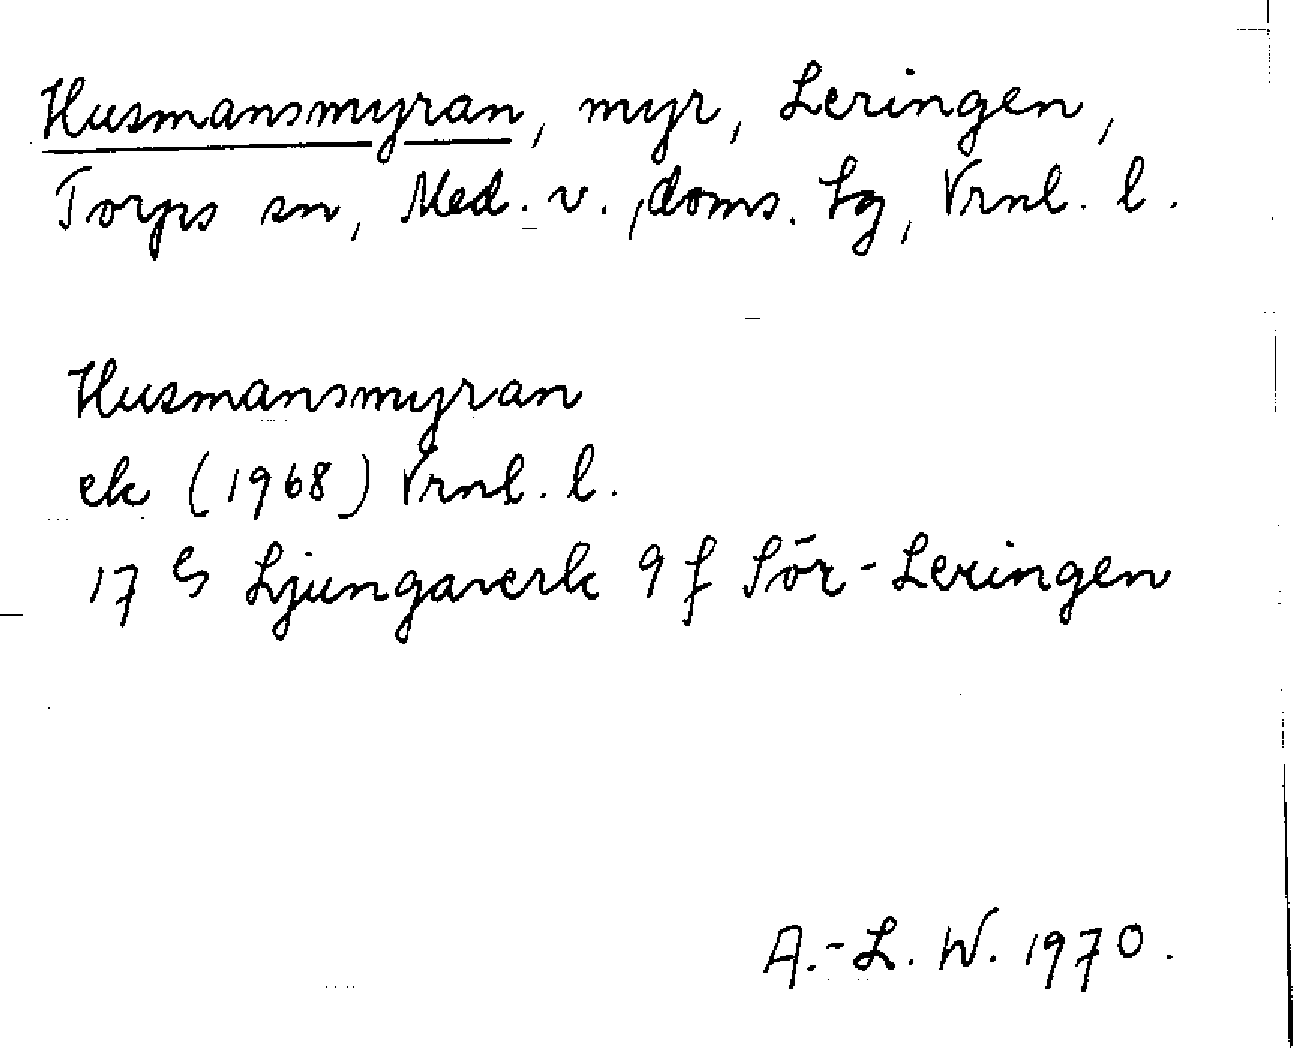 Husmansmyran, myr, Leringen,
Torps sn, Med. v., doms. sg, Vrnl. l.
Husmansmyran
ek (1968) Vrnl. l.
17 G Ljungaverk 9 f Sör-Leringen
A.-L. W. 1970.